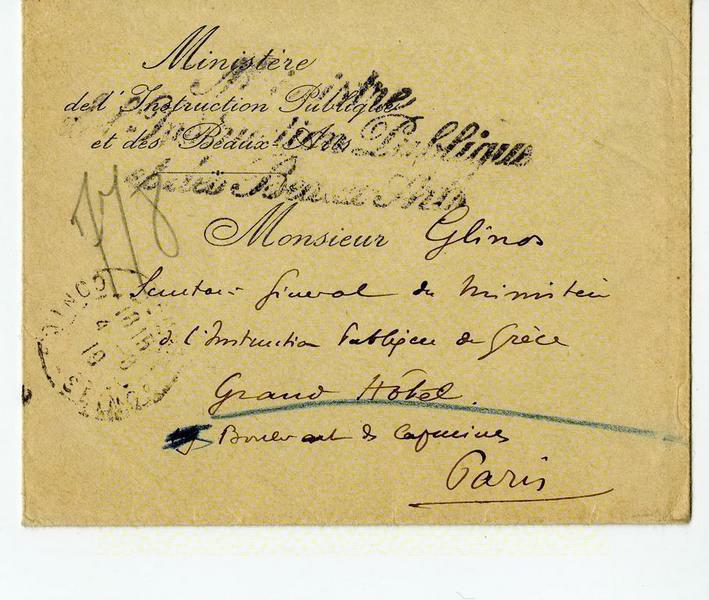 Ministère
de l'Instruction Publique
et des Beaux-Arts
Ministre
de l'Instruction Publique
et des Beaux Arts
Monsieur Glinos
Secrétaire Général du Ministère
de l'Instruction Publique de Grèce
Grand Hôtel
Boulevard des Capucines
Paris